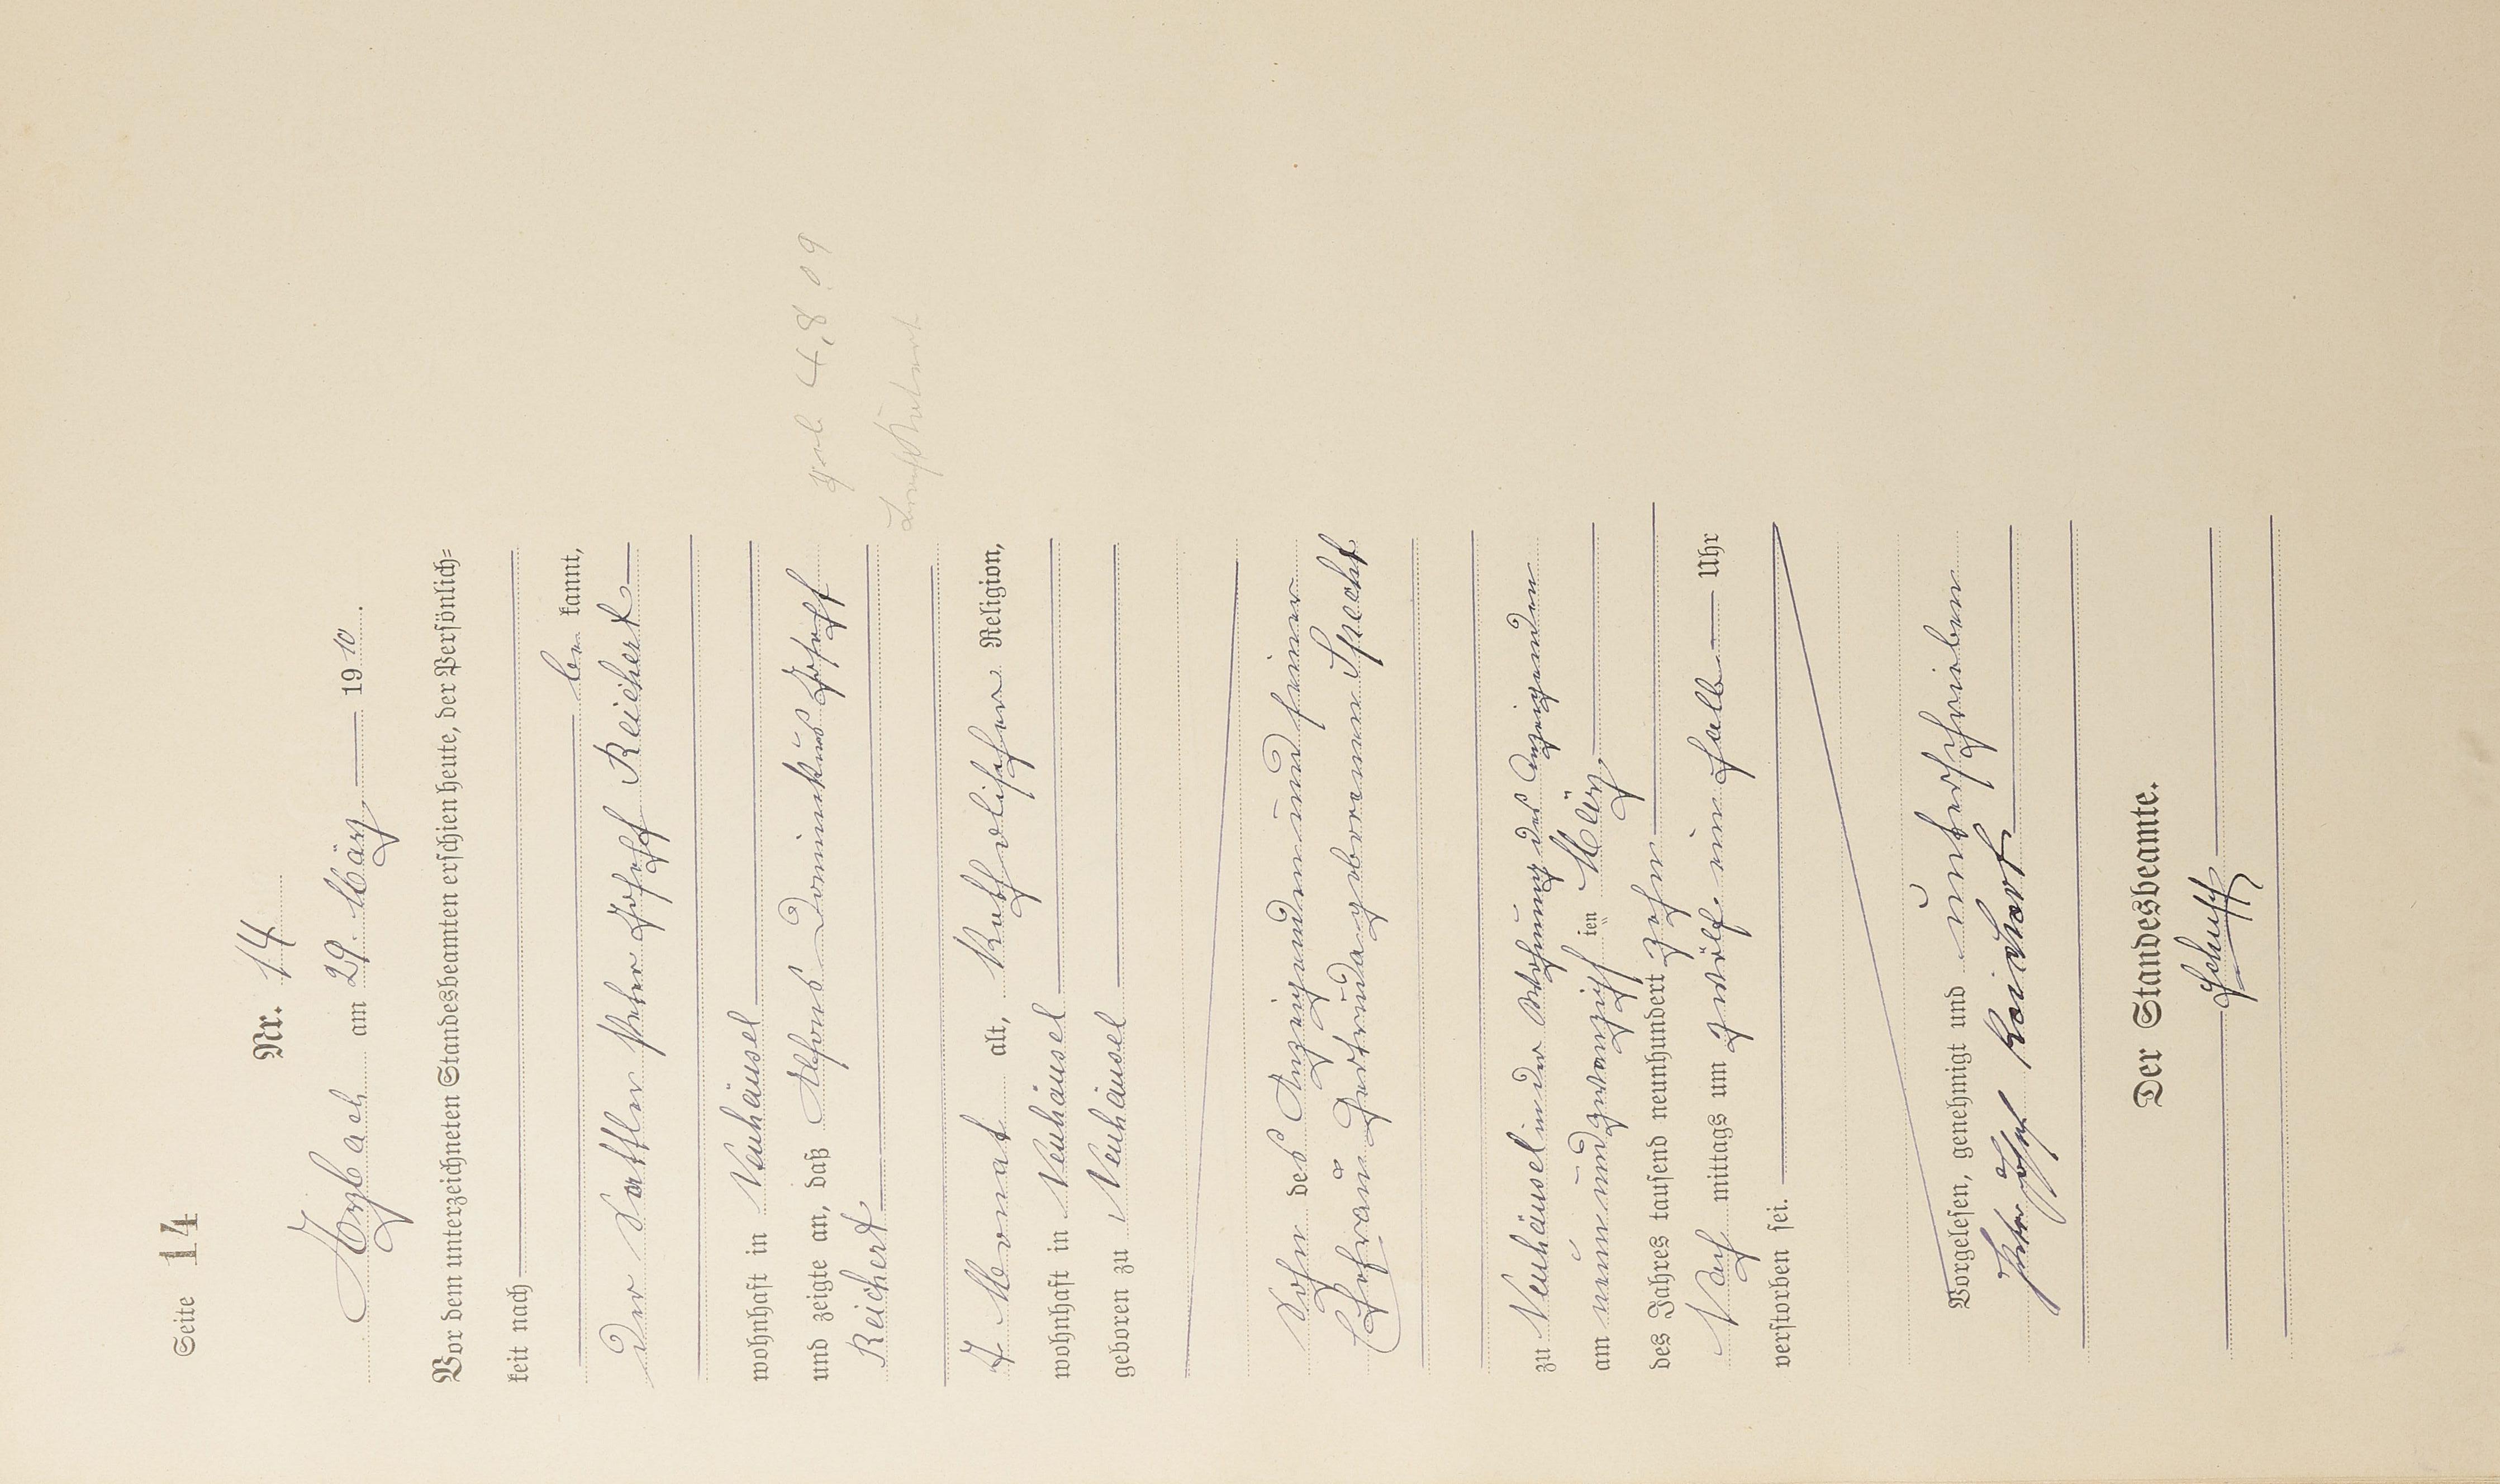 Seite 14
Nr. 14
Arzbach am 29. März 1910.
Vor dem unterzeichneten Standesbeamten erschien heute, der Persönlich=
keit nach
be kannt,
Der Sattler Peter Joseff Reichert
wohnhaft in Neuhäusel
und zeigte an, daß Alfons Dominikus Joseff
geb 4,8 09
Reichert
7 Monat alt, Katholischer Religion,
wohnhaft in Neuhäusel
geboren zu Neuhäusel
Sohn des Anzeigenden und seiner
Ehefrau Gertruda geborenen Specht
zu Neuhäusel in der Wohnung des Anzeigenden
am neun und zwanzigsten März
des Jahres tausend neunhundert zehn
Nach mittags um zwölf ein halb Uhr
verstorben sei.
Vorgelesen, genehmigt und unterschrieben
Peter Josef Reichert
Der Standesbeamte.